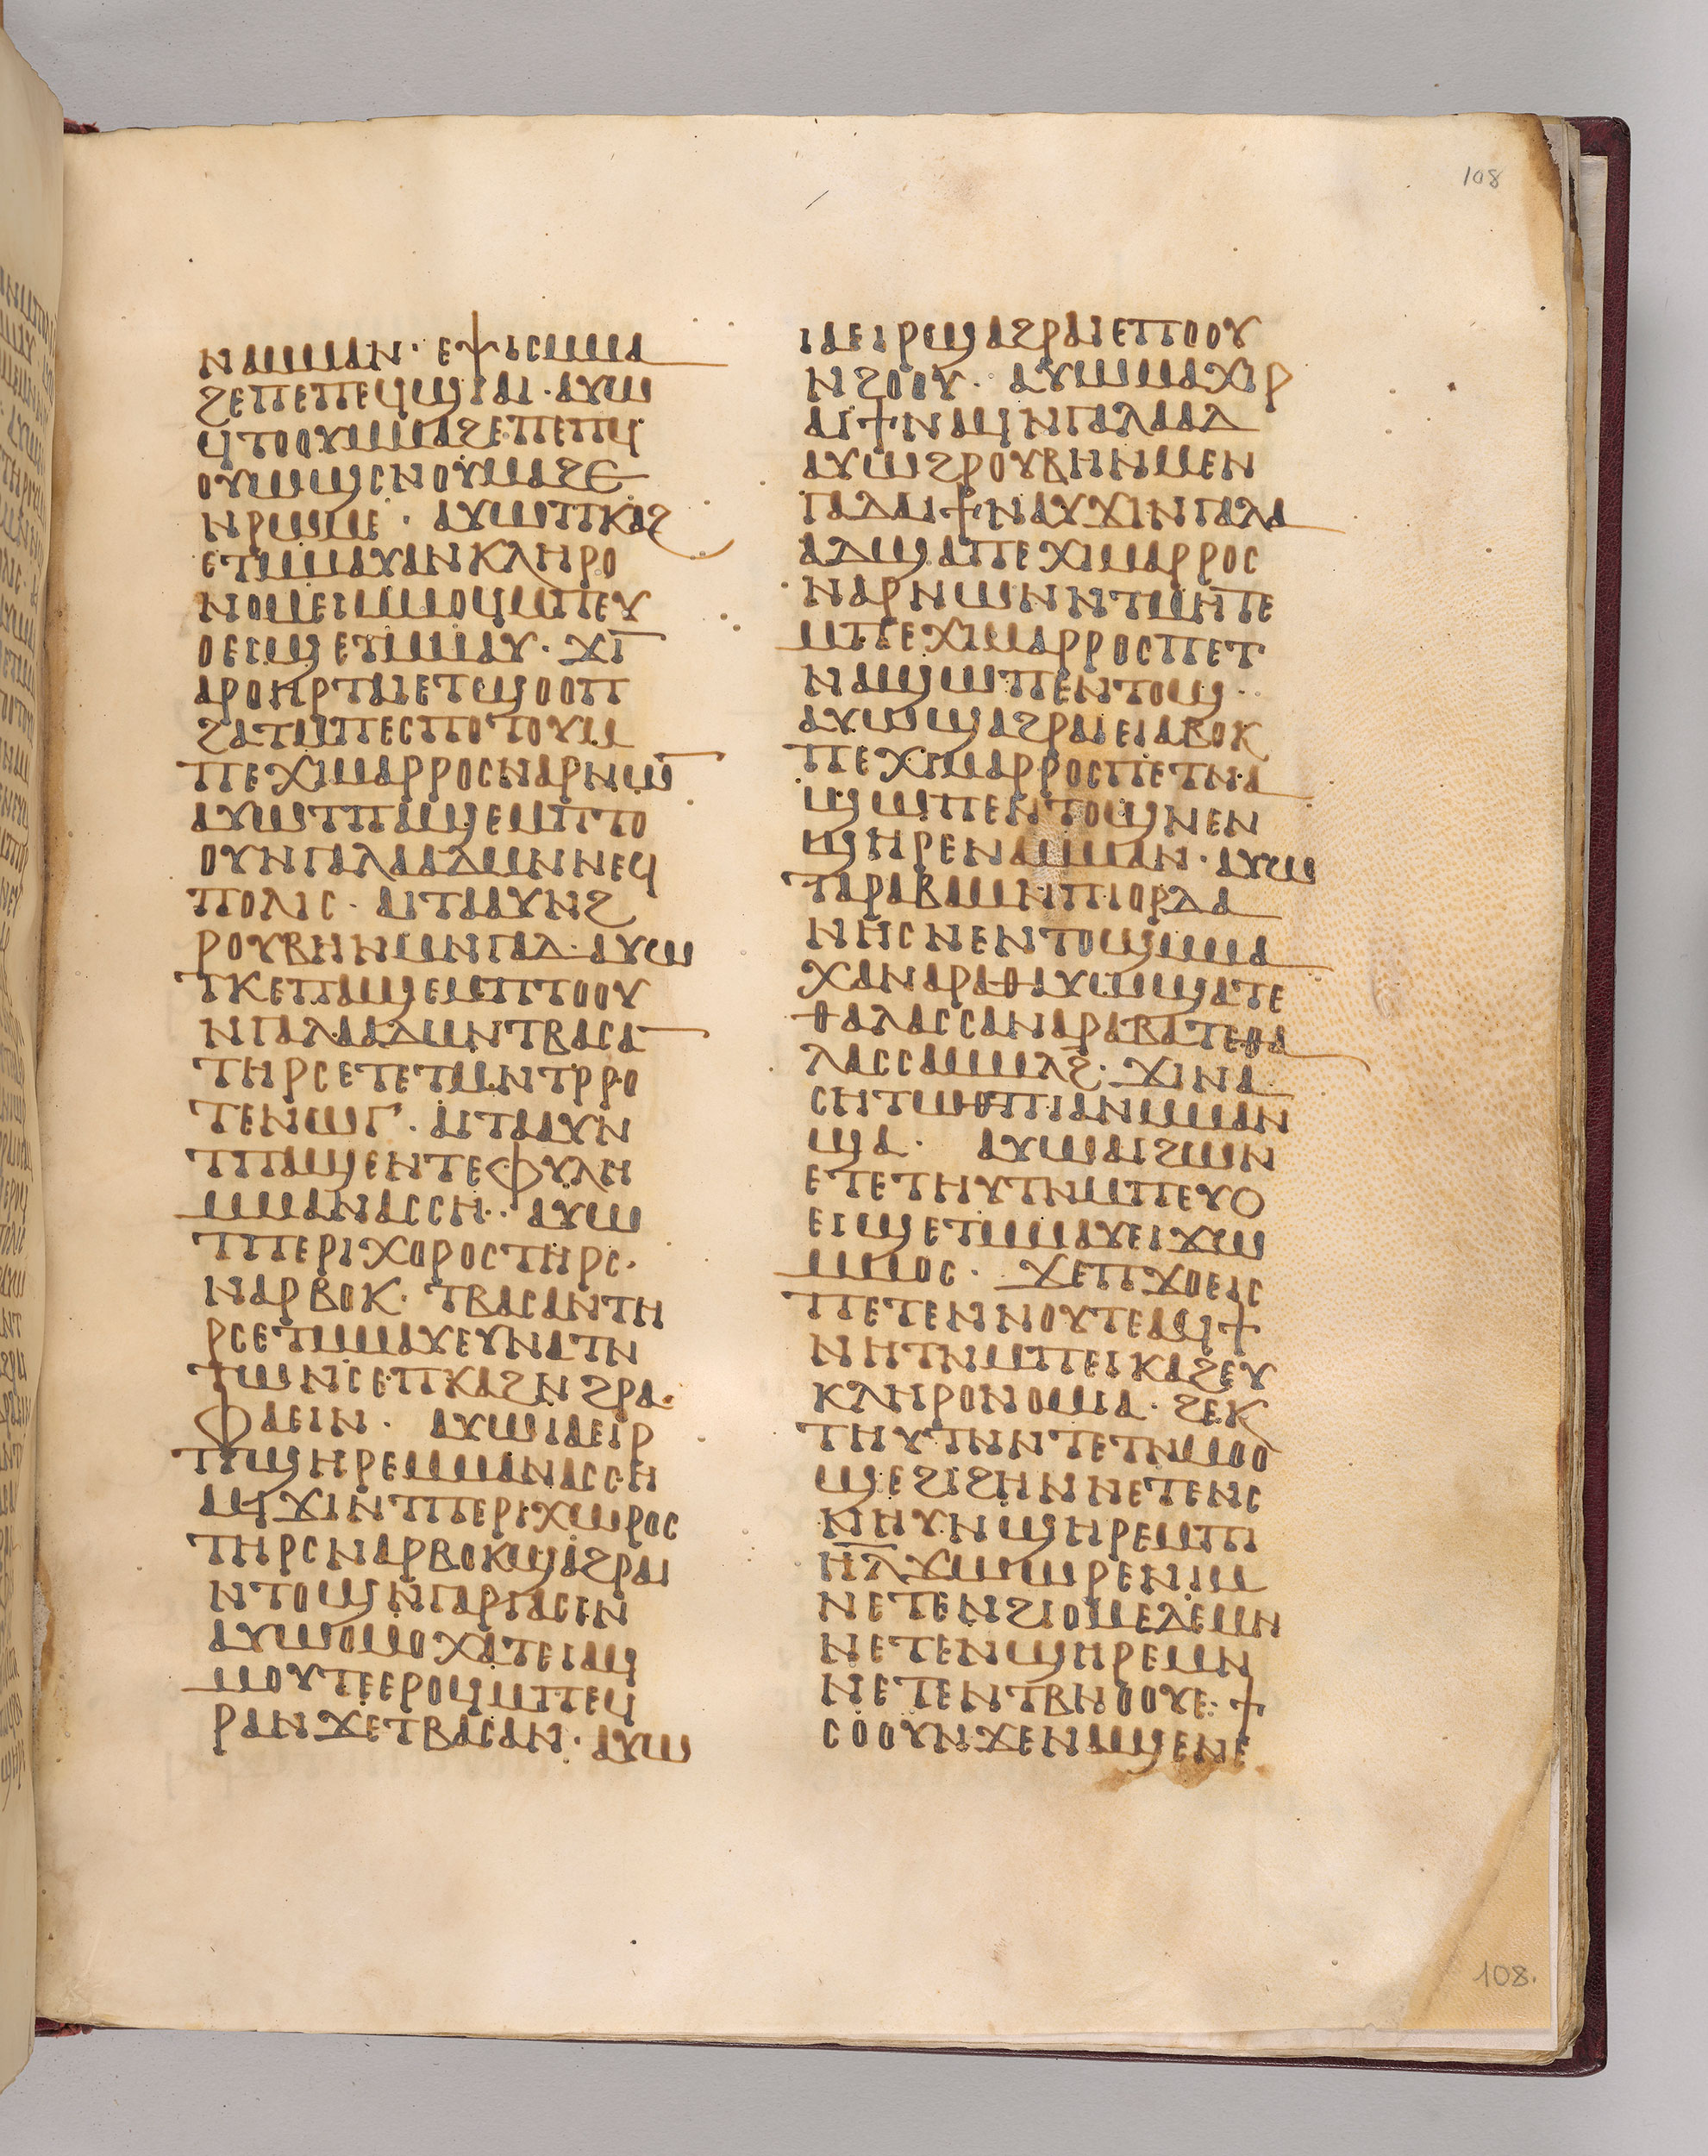 ⲛⲁⲙⲙⲁⲛ· ⲉⲯⲓⲥⲙⲙⲁ
ϩⲉⲡⲉⲡⲉϥϣⲓⲁⲓ· ⲁⲩⲱ
ϥⲧⲟⲟⲩⲙⲙⲁϩⲉ·ⲡⲉⲡϥ
ⲟⲩⲱϣⲥⲛⲟⲩⲙⲁϩⲉ
ⲛⲣⲱⲙⲉ· ⲁⲩⲱⲡⲕⲁϩ
ⲉⲧⲙⲙⲁⲩⲁⲛⲕⲗⲏⲣⲟ
ⲛⲟⲙⲉⲓⲙⲙⲟϥⲙⲡⲉⲩ
ⲟⲉⲓϣⲉⲧⲙⲙⲁⲩ· ϫⲓ̅
ⲁⲣⲟⲏⲣⲧⲁⲓⲉⲧϣⲟⲟⲡ
ϩⲁⲧⲙⲡⲉⲥⲡⲟⲧⲟⲩⲙ
ⲡⲉⲭⲓⲙⲁⲣⲣⲟⲥⲛⲁⲣⲛⲱ̅
ⲁⲩⲱⲧⲡⲁϣⲉⲙⲡⲧⲟ
ⲟⲩⲛⲅⲁⲗⲁⲁⲇⲙⲛⲛⲉϥ
ⲡⲟⲗⲓⲥ· ⲁⲓⲧⲁⲁⲩⲛϩ
ⲣⲟⲩⲃⲏⲛⲙⲛⲅⲁⲇ·ⲁⲩⲱ
ⲧⲕⲉⲡⲁϣⲉⲙⲡⲧⲟⲟⲩ
ⲛⲅⲁⲗⲁⲁⲇⲙⲛⲧⲃⲁⲥⲁ̅
ⲧⲏⲣⲥⲉⲧⲉⲧⲙⲛⲧⲣⲣⲟ
ⲧⲉⲛⲱⲅ· ⲁⲓⲧⲁⲁⲩⲛ
ⲧⲡⲁϣⲉⲛⲧⲉⲫⲩⲗⲏ
ⲙⲙⲁⲛⲁⲥⲥⲏ·· ⲁⲩⲱ
ⲧⲡⲉⲣⲓⲭⲟⲣⲟⲥⲧⲏⲣⲥ·
ⲛⲁⲣⲃⲟⲕ· ⲧⲃⲁⲥⲁⲛⲧⲏ
ⲣⲥⲉⲧⲙⲙⲁⲩⲉⲩⲛⲁⲧⲛ
ⲧⲱⲛⲥⲉⲡⲕⲁϩⲛϩⲣⲁ·
ⲫⲁⲉⲓⲛ· ⲁⲩⲱⲓⲁⲉⲓⲣ
ⲡϣⲏⲣⲉⲙⲙⲁⲛⲁⲥⲥⲏ
ⲁϥϫⲓⲛⲧⲡⲉⲣⲓⲭⲱⲣⲟⲥ
ⲧⲏⲣⲥⲛⲁⲣⲃⲟⲕϣⲁϩⲣⲁⲓ
ⲛⲧⲟϣⲛⲅⲁⲣⲅⲁⲥⲉⲛ
ⲁⲩⲱⲟⲙⲟⲭⲁⲧⲉⲓⲁϥ
ⲙⲟⲩⲧⲉⲉⲣⲟϥⲙⲡⲉϥ
ⲣⲁⲛϫⲉⲧⲃⲁⲥⲁⲛ· ⲁⲩⲱ
ⲓⲁⲉⲓⲣϣⲁϩⲣⲁⲓⲉⲡⲟⲟⲩ
ⲛϩⲟⲟⲩ· ⲁⲩⲱⲙⲁⲭⲓⲣ
ⲁⲓϯⲛⲁϥⲛⲅⲁⲗⲁⲁⲇ
ⲁⲩⲱϩⲣⲟⲩⲃⲏⲛⲙⲉⲛ
ⲅⲁⲇⲁⲓϯⲛⲁⲩϫⲓⲛⲅⲁⲗⲁ
ⲁⲇϣⲁⲡⲉⲭⲓⲙⲁⲣⲣⲟⲥ
ⲛⲁⲣⲛⲱⲛⲛⲧⲙⲏⲧⲉ
ⲙⲡⲉⲭⲓⲙⲁⲣⲣⲟⲥⲡⲉⲧ
ⲛⲁϣⲱⲡⲉⲛⲧⲟϣ··
ⲁⲩⲱϣⲁϩⲣⲁⲓⲉⲓⲁⲃⲟⲕ
ⲡⲉⲭⲓⲙⲁⲣⲣⲟⲥⲡⲉⲧⲛⲁ
ϣⲱⲡⲉⲛⲧⲟϣⲛⲉⲛ
ϣⲏⲣⲉⲛⲁⲙⲙⲁⲛ· ⲁⲩⲱ
ⲧⲁⲣⲁⲃⲁⲙⲛⲡⲓⲟⲣⲇⲁ
ⲛⲏⲥⲛⲉⲛⲧⲟϣⲙⲙⲁ
ⲭⲁⲛⲁⲣⲁⲑⲁⲩⲱϣⲁⲧⲉ
ⲑⲁⲗⲁⲥⲥⲁⲛⲁⲣⲁⲃⲁⲧⲉⲑⲁ
ⲗⲁⲥⲥⲁⲙⲙⲗϩ· ϫⲓⲛⲁ
ⲥⲏⲧⲱⲑⲡⲓⲁⲛⲙⲙⲁⲛ
ϣⲁ· ⲁⲩⲱⲁⲓϩⲱⲛ
ⲉⲧⲉⲧⲏⲩⲧⲛⲙⲡⲉⲩⲟ
ⲉⲓϣⲉⲧⲙⲙⲁⲩⲉⲓϫⲱ
ⲙⲙⲟⲥ· ϫⲉⲡϫⲟⲉⲓⲥ
ⲡⲉⲧⲉⲛⲛⲟⲩⲧⲉⲁϥϯ
ⲛⲏⲧⲛⲙⲡⲉⲓⲕⲁϩⲉⲩ
ⲕⲗⲏⲣⲟⲛⲟⲙⲓⲁ· ϩⲉⲕ
ⲧⲏⲩⲧⲛⲛⲧⲉⲧⲛⲙⲟⲟ
ϣⲉϩⲓϩⲏⲛⲛⲉⲧⲉⲛⲥ
ⲛⲏⲩⲛϣⲏⲣⲉⲙⲡⲓ
ⲏ̅ⲗ̅ϫⲱⲱⲣⲉⲛⲓⲙ
ⲛⲉⲧⲉⲛϩⲓⲟⲙⲉⲇⲉⲙⲛ
ⲛⲉⲧⲉⲛϣⲏⲣⲉⲙⲛ
ⲛⲉⲧⲉⲛⲧⲃⲛⲟⲟⲩⲉ·ϯ
ⲥⲟⲟⲩⲛϫⲉⲛⲁϣⲉⲛⲉ
108
108.